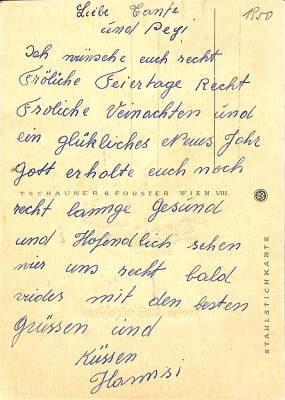 Liebe Tante
und Pegi
1950
Ich wünsche euch recht
Fröliche Feiertage Recht
Froliche Veinachten und
ein glükliches Neues Jahr
Gott erhalte euch noch
TSCHAUNER & FORSTER WIEN VIII.
recht lannge Gesund
und Hofendlich sehen
vier uns recht bald
vides mit den besten
Grüssen und
Küssen
Hannsi
STAHLSTICHKARTE